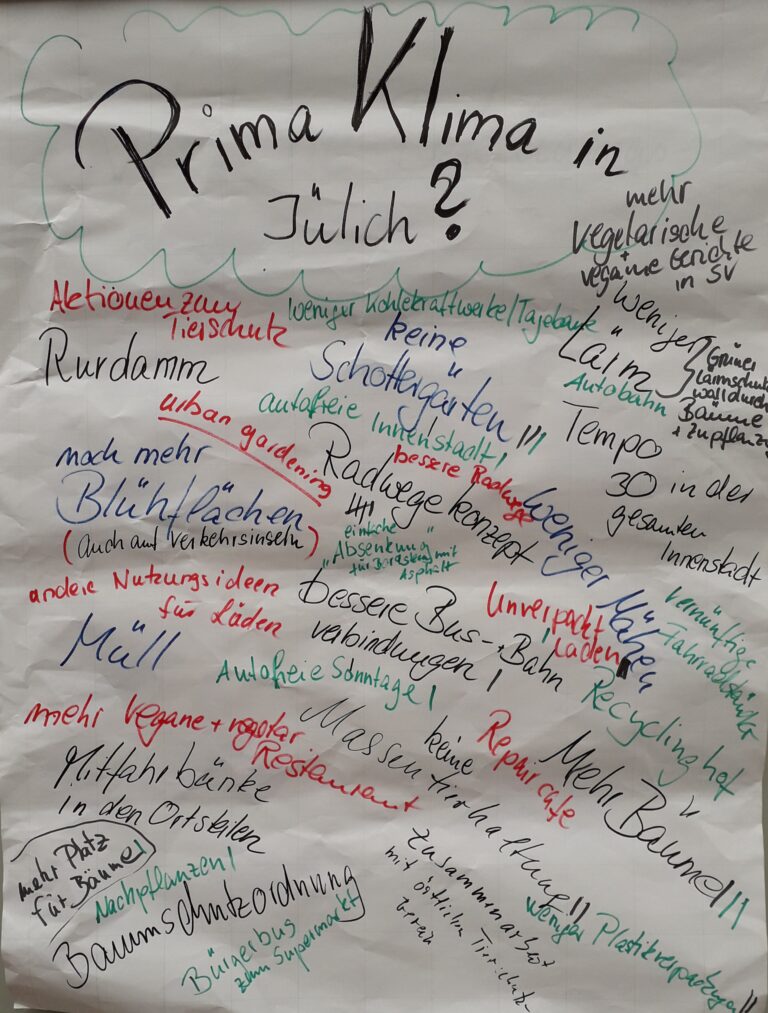 Prima Klima in
Jülich?
mehr
vegetarische
+
vegane Gerichte
in SV
Aktionen zum
Tierschutz
weniger Kohlekraftwerke/Tagebaue
Rurdamm
keine
Schottergärten!!!
weniger
Lärm
Autobahn
Grüner
Lärmschutz
wall durch
Bäume
urban gardening
autofreie Innenstadt!
Tempo
30 in der
gesamten
Innenstadt
noch mehr
Blühflächen
(auch auf Verkehrsinseln)
bessere Radwege
Radwegekonzept
einfache
"Absenkung"
mit
Asphalt
weniger Mähen
andere Nutzungsideen
für Läden
bessere Bus-, Bahn
verbindungen!
Unverpackt
Laden!
vernünftige
Fahrradständer
Müll
Autofreie Sonntage!
Recyclinghof
mehr vegane + vegetar
Restaurant
keine
Massentierhaltung!!
Repaircafe
Mehr Bäume!!!
Mitfahrbänke
in den Ortsteilen
mehr Platz
für Bäume!
Nachpflanzen!
Baumschutzordnung
Bürgerbus
zum Supermarkt
Zusammenarbeit
mit örtlichen Tierschutz
verein
weniger Plastikverpackungen!!